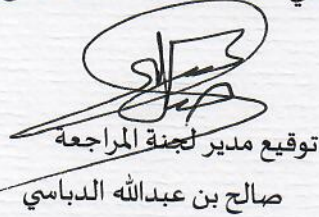 توقيع مدير لجنة المراجعة
صالح بن عبدالله الدباسي